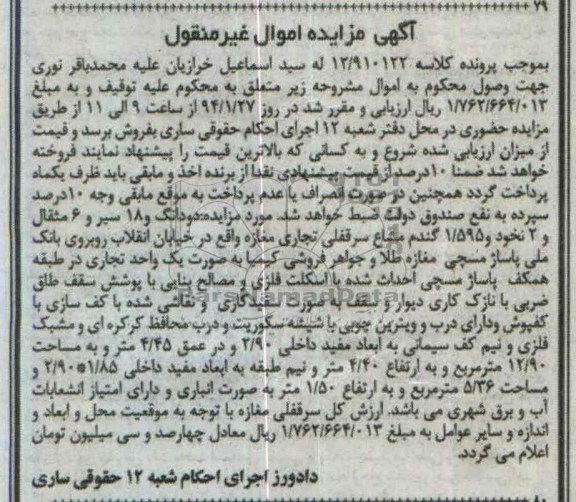 ۲۹
آگهی مزایده اموال غیرمنقول
بموجب پرونده کلاسه ۱۲/۹۱۰۱۲۲ له سید اسماعیل خرازیان علیه محمدباقر نوری
جهت وصول محکوم به اموال مشروحه زیر متعلق به محکوم علیه توقیف و به مبلغ
۱/۷۶۲/۶۶۴/۰۱۳ ریال ارزیابی و مقرر شد در روز ۹۴/۱/۲۷ از ساعت ۹ الی ۱۱ از طریق
مزایده حضوری در محل دفتر شعبه ۱۲ اجرای احکام حقوقی ساری بفروش برسد و قیمت
از میزان ارزیابی شده شروع و به کسانی که بالاترین قیمت را پیشنهاد نمایند فروخته
خواهد شد ضمنا ۱۰درصد از قیمت پیشنهادی نقدا از برنده اخذ و مابقی باید ظرف یکماه
پرداخت گردد همچنین در صورت انصراف یا عدم پرداخت به موقع مابقی وجه ۱۰درصد
سپرده به نفع صندوق دولت ضبط خواهد شد. مورد مزایده:دودانگ و۱۸ سیر و ۶ مثقال
و ۲ نخود و۱/۵۹۵ گندم مشاع سرقفلی تجاری مغازه واقع در خیابان انقلاب روبروی بانک
ملی پاساژ مسچی مغازه طلا و جواهر فروشی کیمیا به صورت یک واحد تجاری در طبقه
همکف پاساژ مسچی احداث شده با اسکلت فلزی و مصالح بنایی با پوشش سقف طاق
ضربی با نازک کاری دیوار و سقف بصورت سفیدکاری و نقاشی شده با کف سازی با
کفپوش ودارای درب و ویترین چوبی با شیشه سکوریت و درب محافظ کرکره ای و مشبک
فلزی و نیم کف سیمانی به ابعاد مفید داخلی ۲/۹۰ و در عمق ۴/۴۵ متر و به مساحت
۱۲/۹۰ مترمربع و به ارتفاع ۴/۴۰ متر و نیم طبقه به ابعاد مفید داخلی ۱/۸۵*۲/۹۰ و
مساحت ۵/۳۶ مترمربع و به ارتفاع ۱/۵۰ متر به صورت انباری و دارای امتیاز انشعابات
آب و برق شهری می باشد. ارزش کل سرقفلی مغازه با توجه به موقعیت محل و ابعاد و
اندازه و سایر عوامل به مبلغ ۱/۷۶۲/۶۶۴/۰۱۳ ریال معادل چهارصد و سی میلیون تومان
اعلام می گردد.
دادورز اجرای احکام شعبه ۱۲ حقوقی ساری